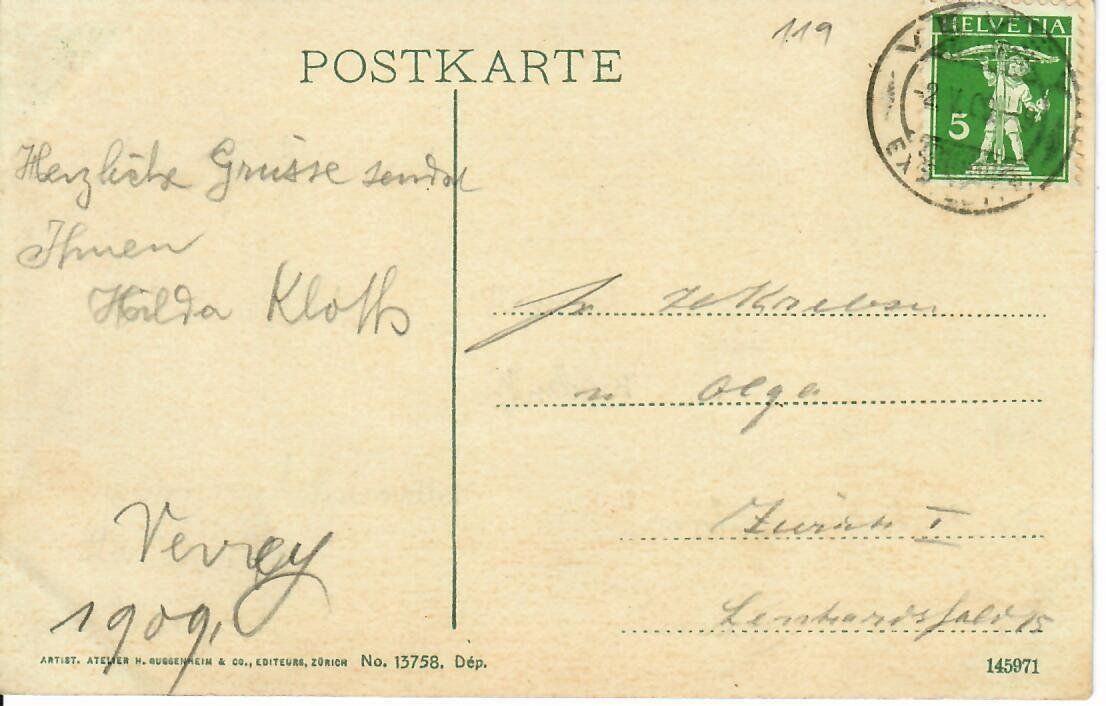 119
HELVETIA
5
POSTKARTE
Herzliche Grüsse sendet
Ihnen
Hilda Kloth
Vevey
1909.
Olga
Zürich I
15
ARTIST. ATELIER H. GUGGENHEIM & CO., EDITEURS, ZÜRICH No. 13758. Dép.
145971